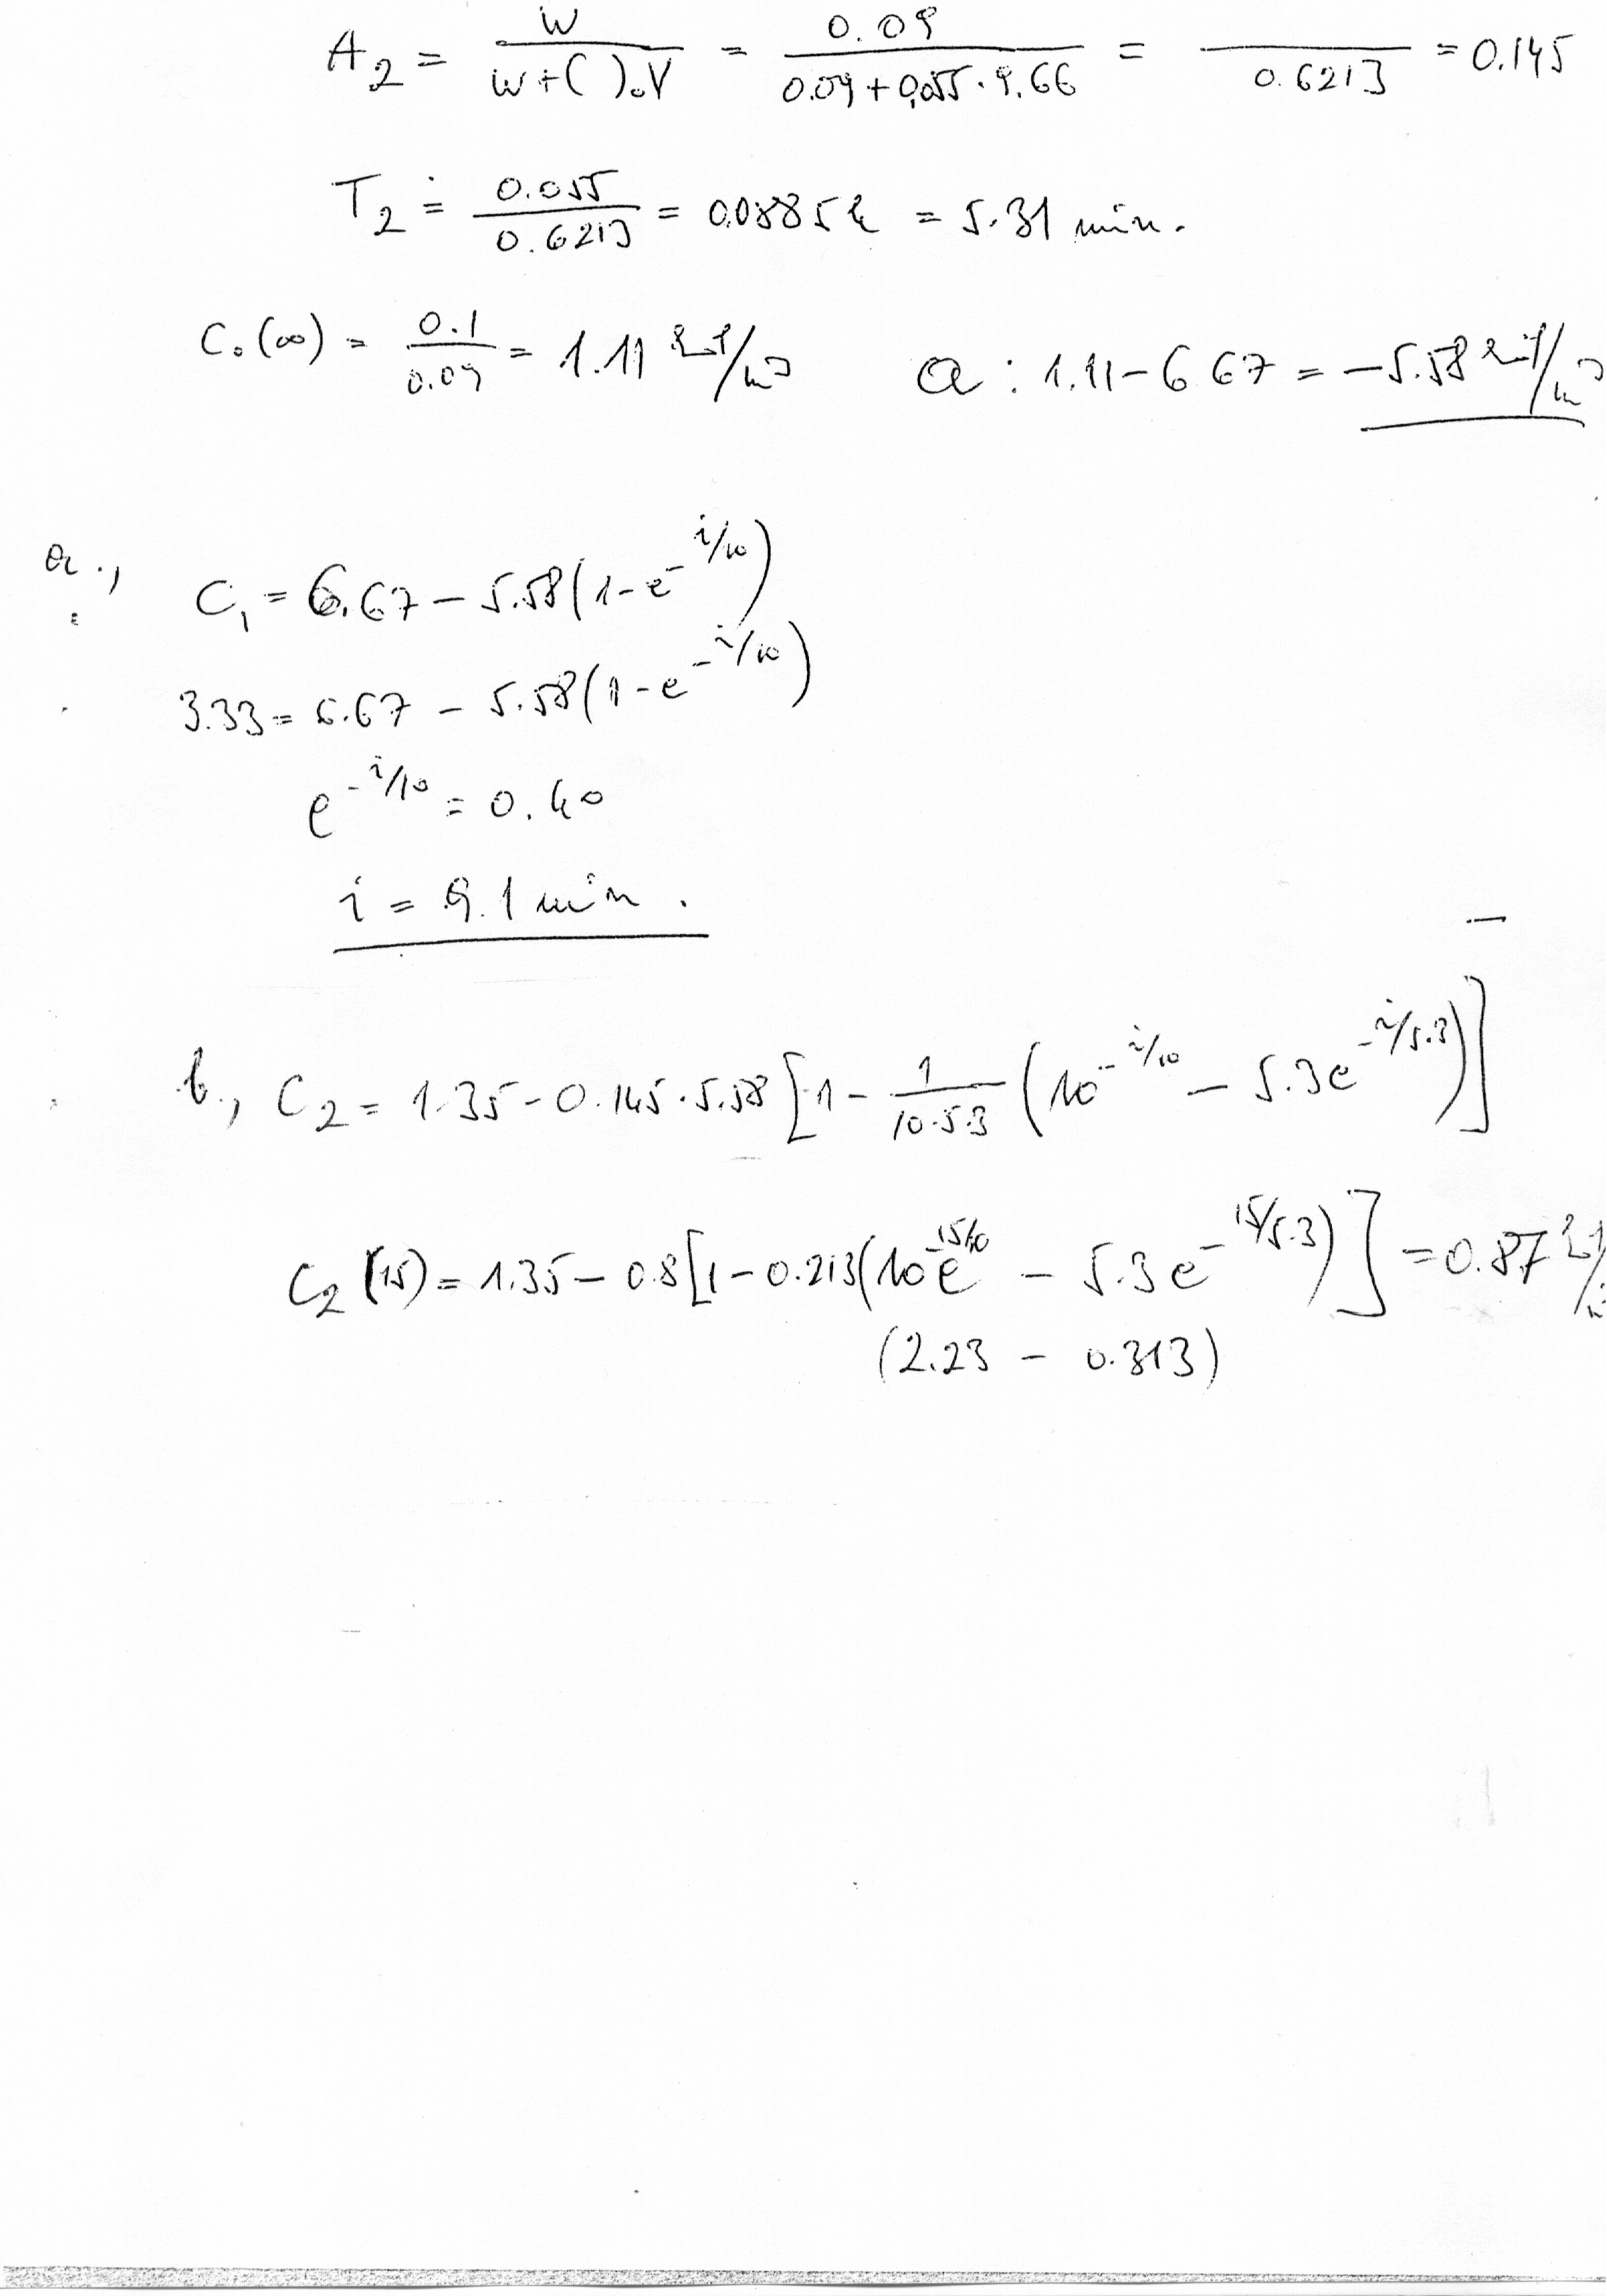 A₂ = w / (w+( )·V) = 0.09 / (0.09+0,055·9.66) = / 0.6213 = 0.145
T₂ = 0.055 / 0.6213 = 0.0885 h = 5.31 min.
C₀(∞) = 0.1 / 0.09 = 1.11 /m³ a: 1.11-6.67 = -5.58 /m³
a., C₁ = 6.67 - 5.58(1-e^-i/10)
3.33 = 6.67 - 5.58(1-e^-i/10)
e^-i/10 = 0.40
i = 9.1 min.
b., C₂ = 1.35-0.145·5.58[1- 1/(10-5.3) (10^-i/10 - 5.3e^-i/5.3)]
C₂(15) = 1.35-0.8[1-0.213(10e^-15/10 - 5.3e^-15/5.3)] = 0.87
(2.23 - 0.313)